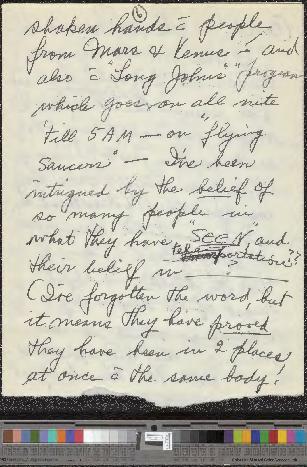 6
shaken hands c̄ people
from Mars & Venus – and
also c̄ "Long Johns" program
which goes on all nite
'till 5 AM — on "flying
saucers" — I've been
intrigued by the belief of
so many people in
what they have "SEEN" and
their belief in tele ??
(I've forgotten the word, but
it means they have proved
they have been in 2 places
at once c̄ the same body!